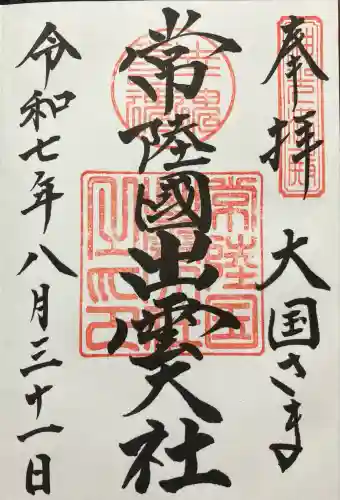 奉拝
大国さま
常陸國出雲大社
令和七年八月三十一日
常陸国